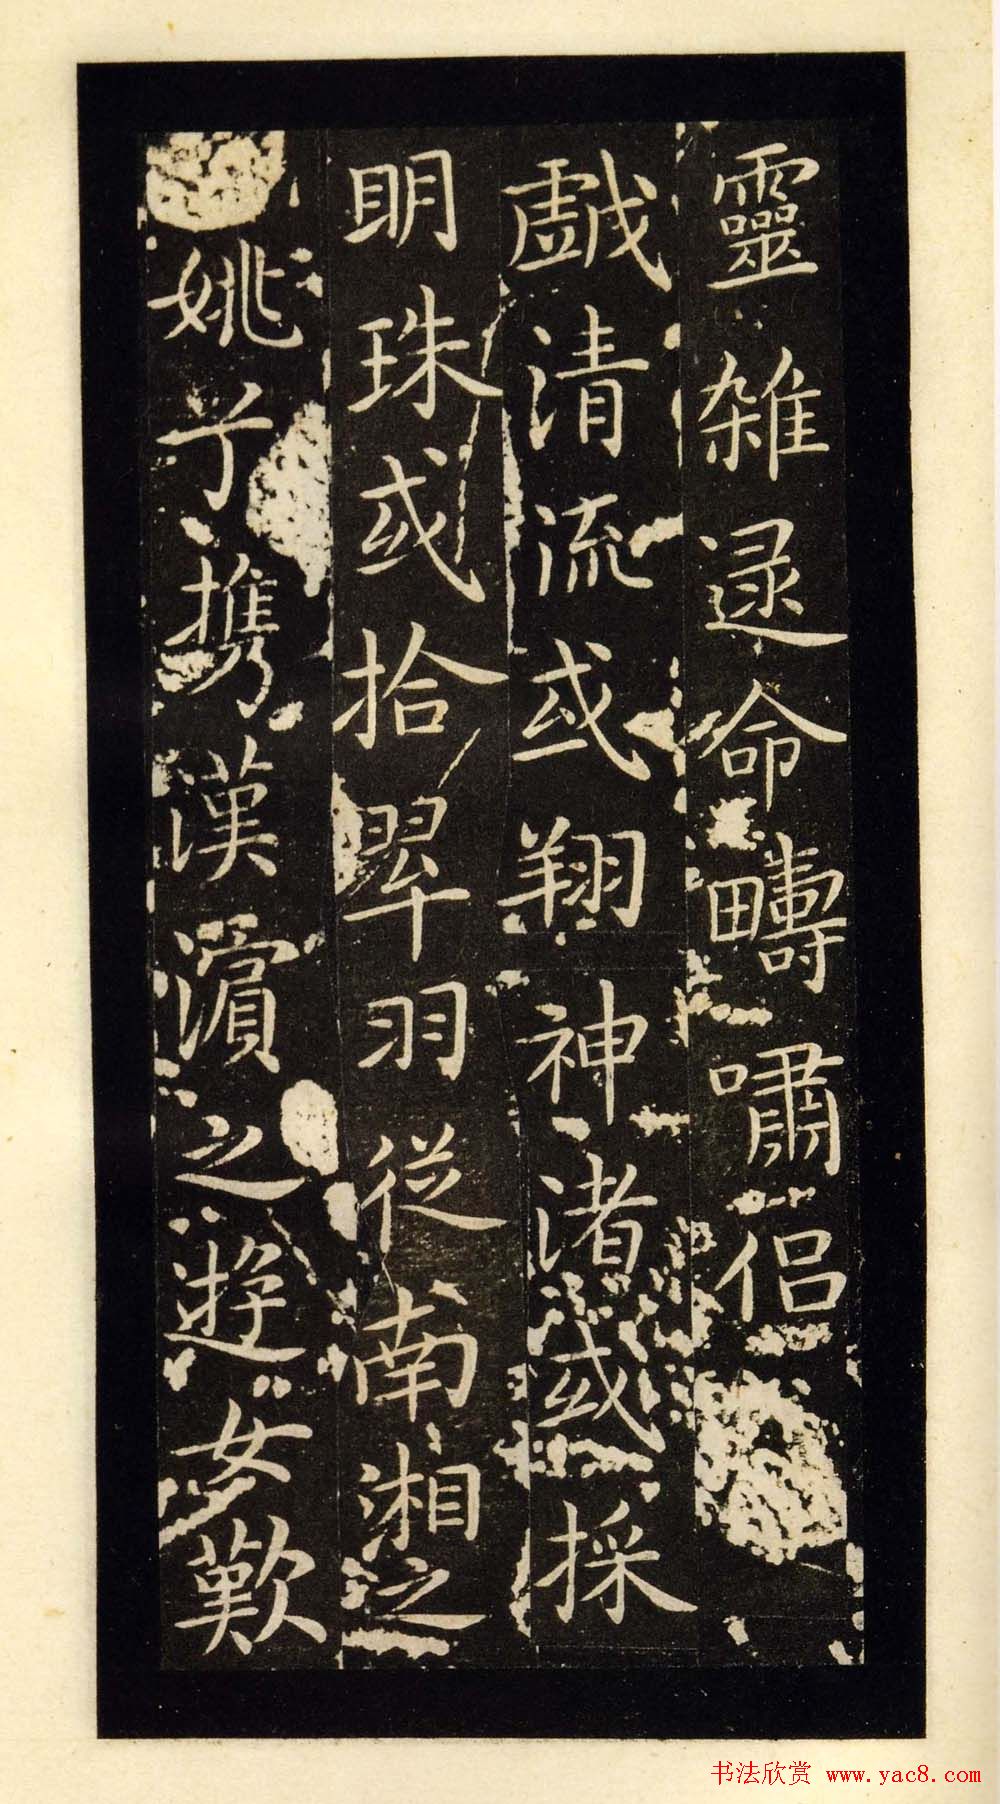 靈雜遝命疇嘯侶
戲清流或翔神渚或採
明珠或拾翠羽從南湘之
姚予攜漢濱之遊女歎
书法欣赏 www.yac8.com